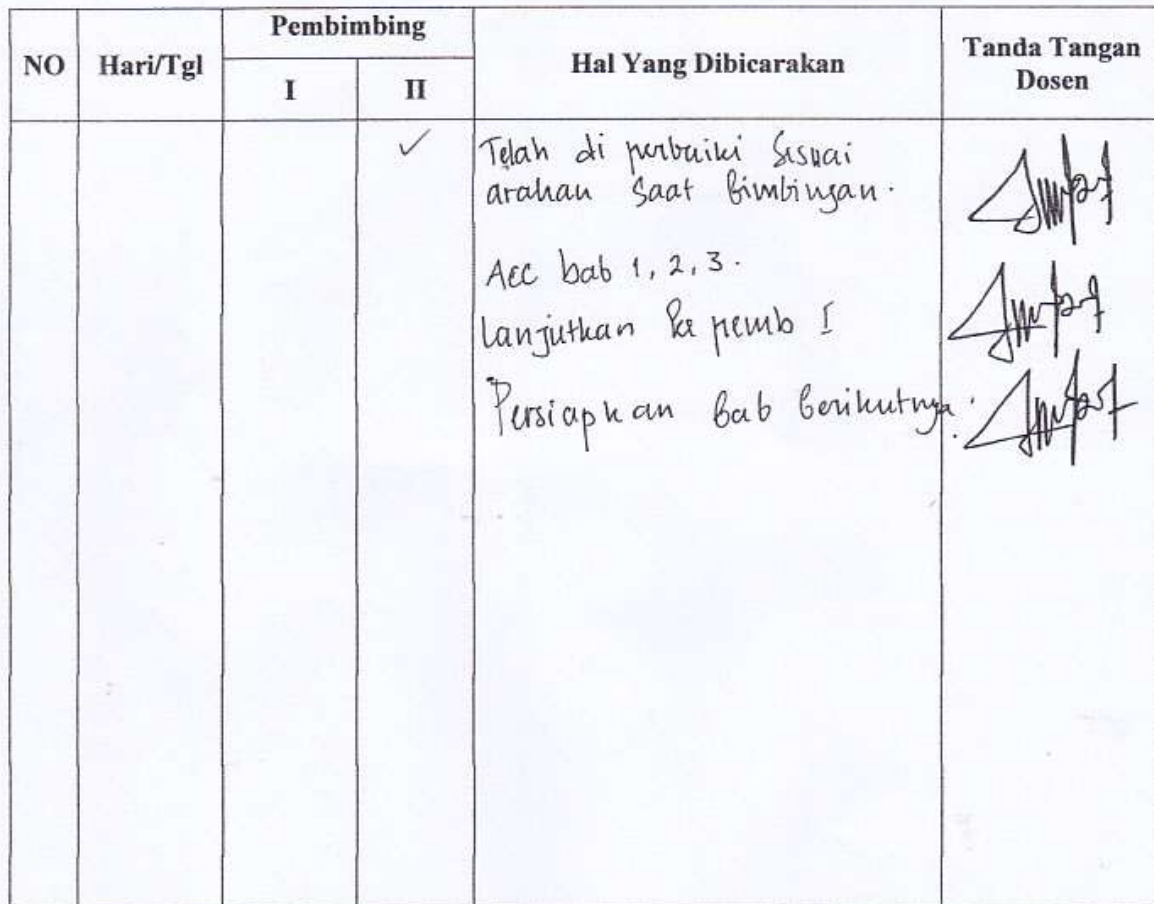 NO Hari/Tgl Pembimbing Hal Yang Dibicarakan Tanda Tangan Dosen
I II
✓ Telah di perbaiki Sesuai
arahan Saat Bimbingan.
Acc bab 1, 2, 3.
Lanjutkan ke pemb I
Persiapkan Bab berikutnya.